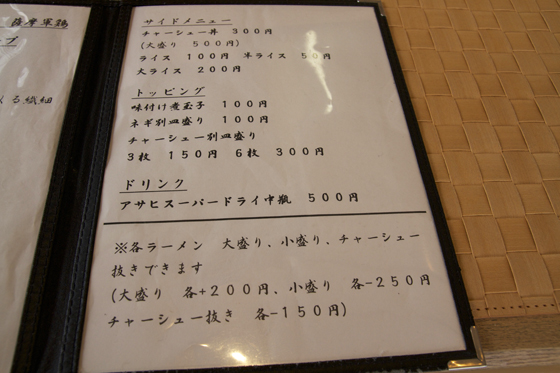 薩摩軍鶏
サイドメニュー
チャーシュー丼　３００円
(大盛り　５００円)
ライス　１００円　半ライス　５０円
大ライス　２００円
トッピング
味付け煮玉子　１００円
ネギ別皿盛り　１００円
チャーシュー別皿盛り
３枚　１５０円　６枚　３００円
ドリンク
アサヒスーパードライ中瓶　５００円
※各ラーメン　大盛り、小盛り、チャーシュー
抜きできます
(大盛り　各+２００円、小盛り　各-２５０円
チャーシュー抜き　各-１５０円)